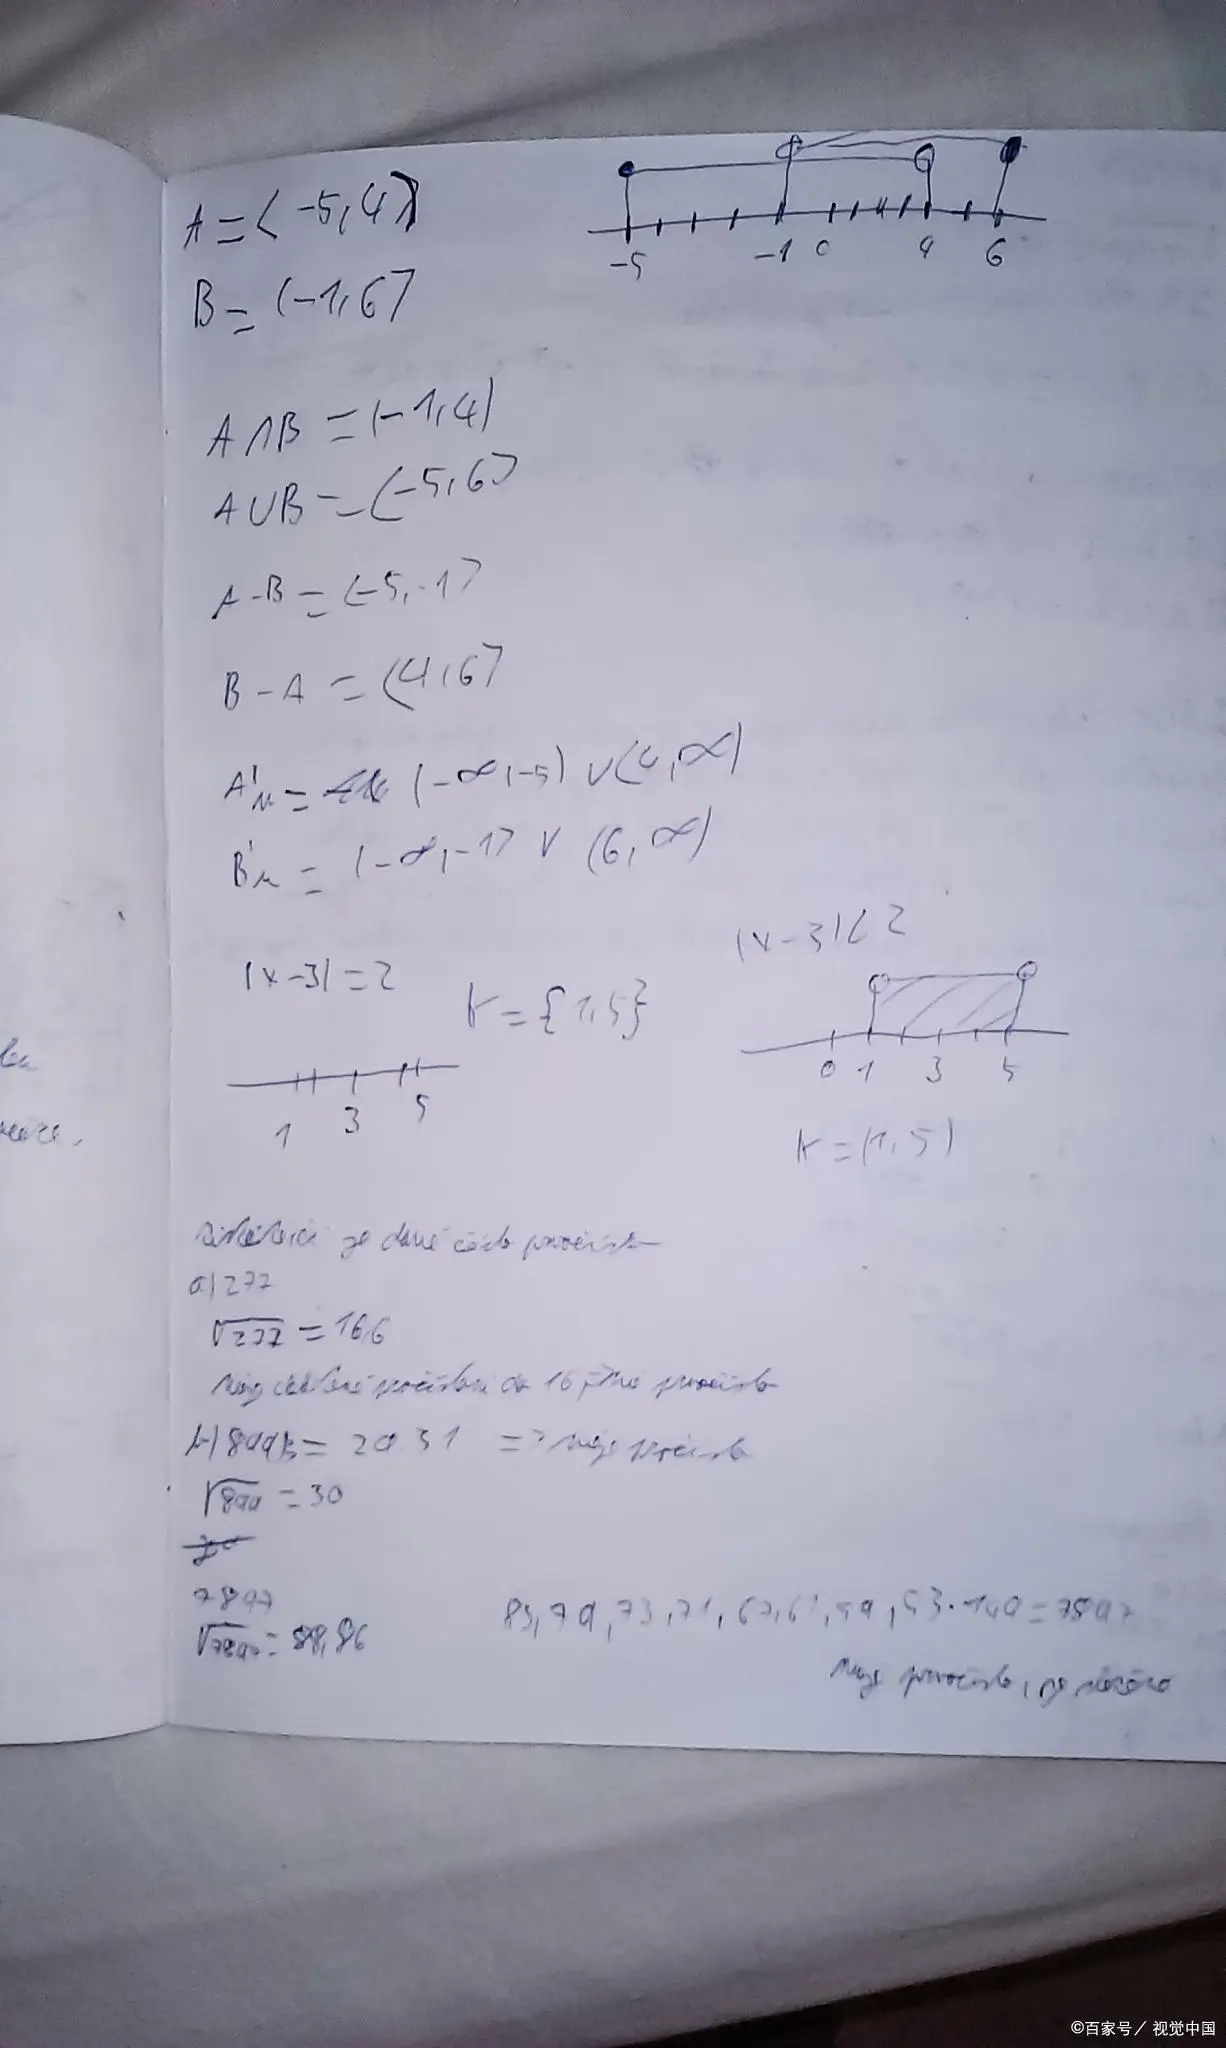 A = ⟨-5, 4)
B = (-1, 6⟩
-5 -1 0 4 6
A ∩ B = (-1, 4)
A ∪ B = ⟨-5, 6⟩
A - B = ⟨-5, -1⟩
B - A = ⟨4, 6⟩
A' = (-∞, -5) ∪ ⟨4, ∞)
B' = (-∞, -1⟩ ∪ (6, ∞)
|x-3| < 2
|x-3| = 2
K = {1, 5}
0 1 3 5
1 3 5
K = (1, 5)
je dané číslo prvočíslo
a) 277
√277 = 16,6
16
b) 899 = 29.31 =>
√899 = 30
7897
√7897 = 88,86
83, 79, 73, 71, 67, 61, 59, 53.149 = 7897
prvočíslo, je
©百家号／视觉中国